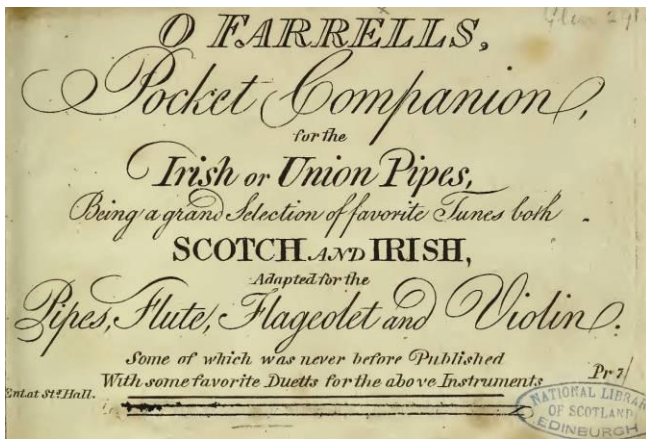 Glen 291
O FARRELLS,
Pocket Companion,
for the
Irish or Union Pipes,
Being a grand Selection of favorite Tunes both
SCOTCH AND IRISH,
Adapted for the
Pipes, Flute, Flageolet and Violin.
Some of which was never before Published
Pr 7/
With some favorite Duetts for the above Instruments
Ent. at Sta. Hall.
NATIONAL LIBRARY
OF SCOTLAND
EDINBURGH